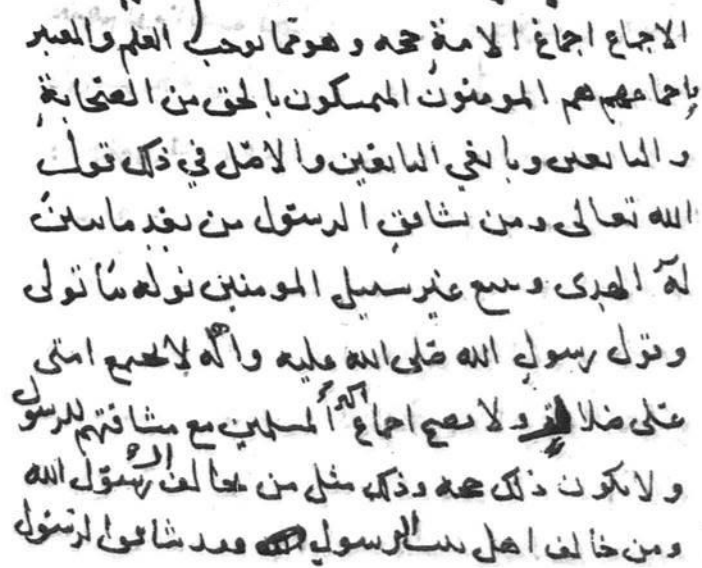 الاجماع اجماع الامة حجه وهو مما يوجب العلم والمعتبر
باجماعهم هم المومنون المتمسكون بالحق من الصحابة
والتابعين وتابعي التابعين والاصل في ذلك قول
الله تعالى ومن يشاقق الرسول من بعد ما تبين
له الهدى ويتبع غير سبيل المومنين نوله ما تولى
وقول رسول الله صلى الله عليه واله لا تجتمع امتي
على ضلالة ولا يصح اجماع اكثر المسلمين مع مشاقتهم للرسول
ولا يكون ذلك حجه وذلك مثل من خالف ال رسول الله
ومن خالف اهل بيت الرسول فقد شاقوا الرسول